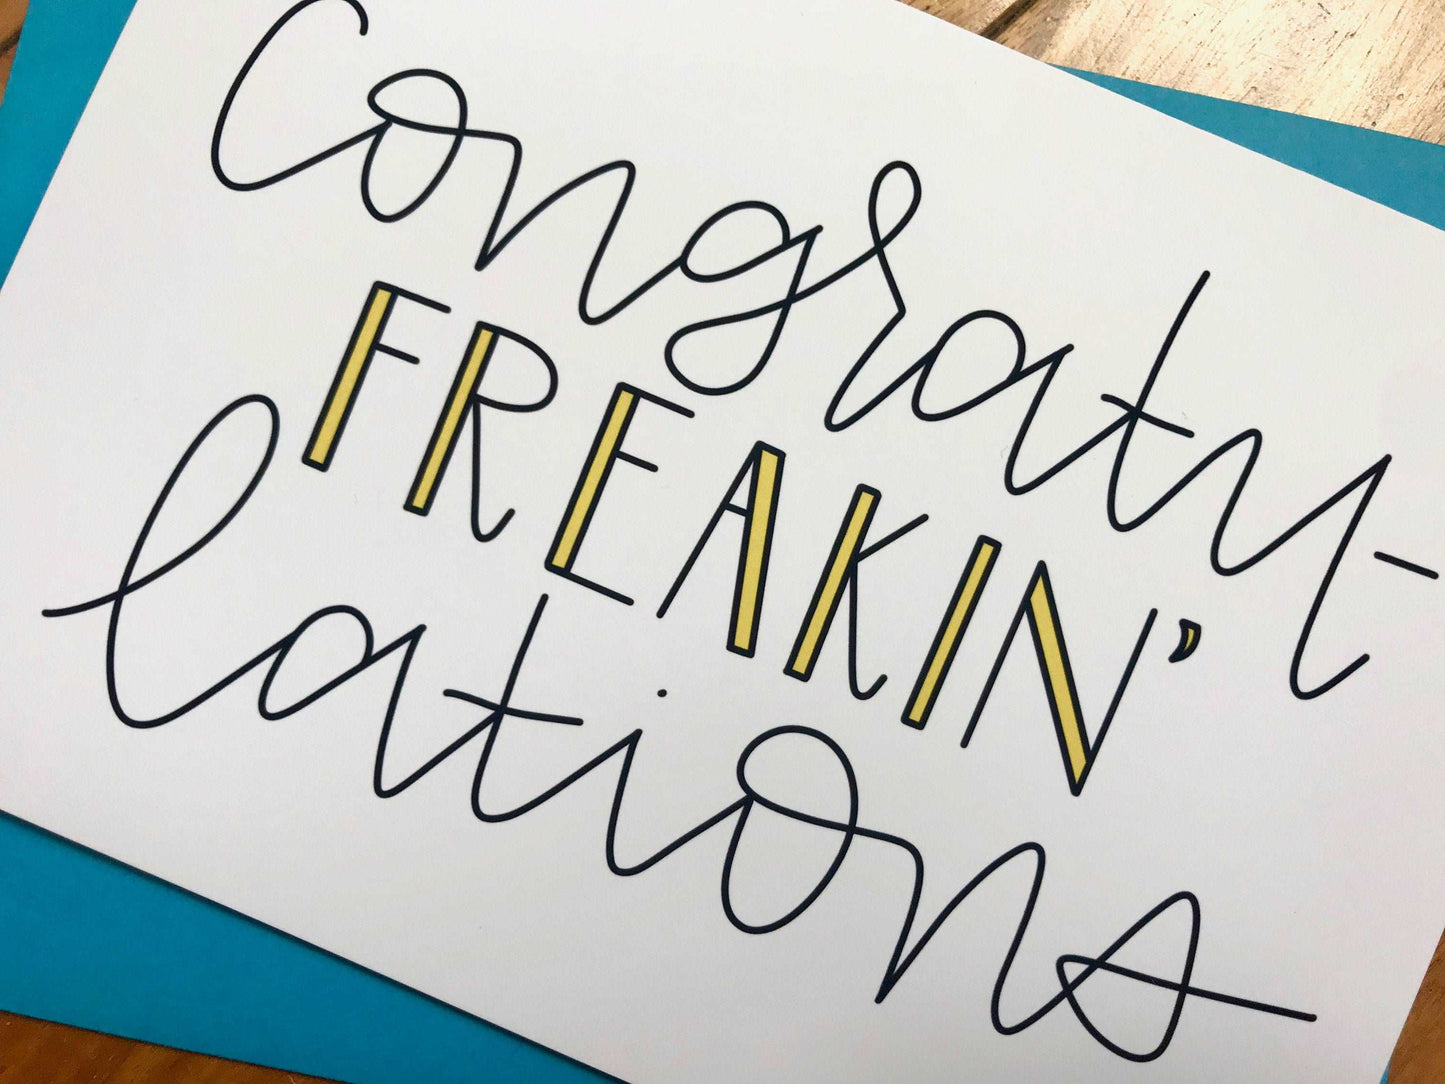 congratu-
FREAKIN'
lations